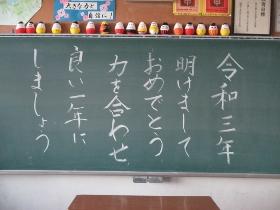 大きな力と
自信に!
令和三年
明けまして
おめでとう
力を合わせ
良い一年に
しましょう